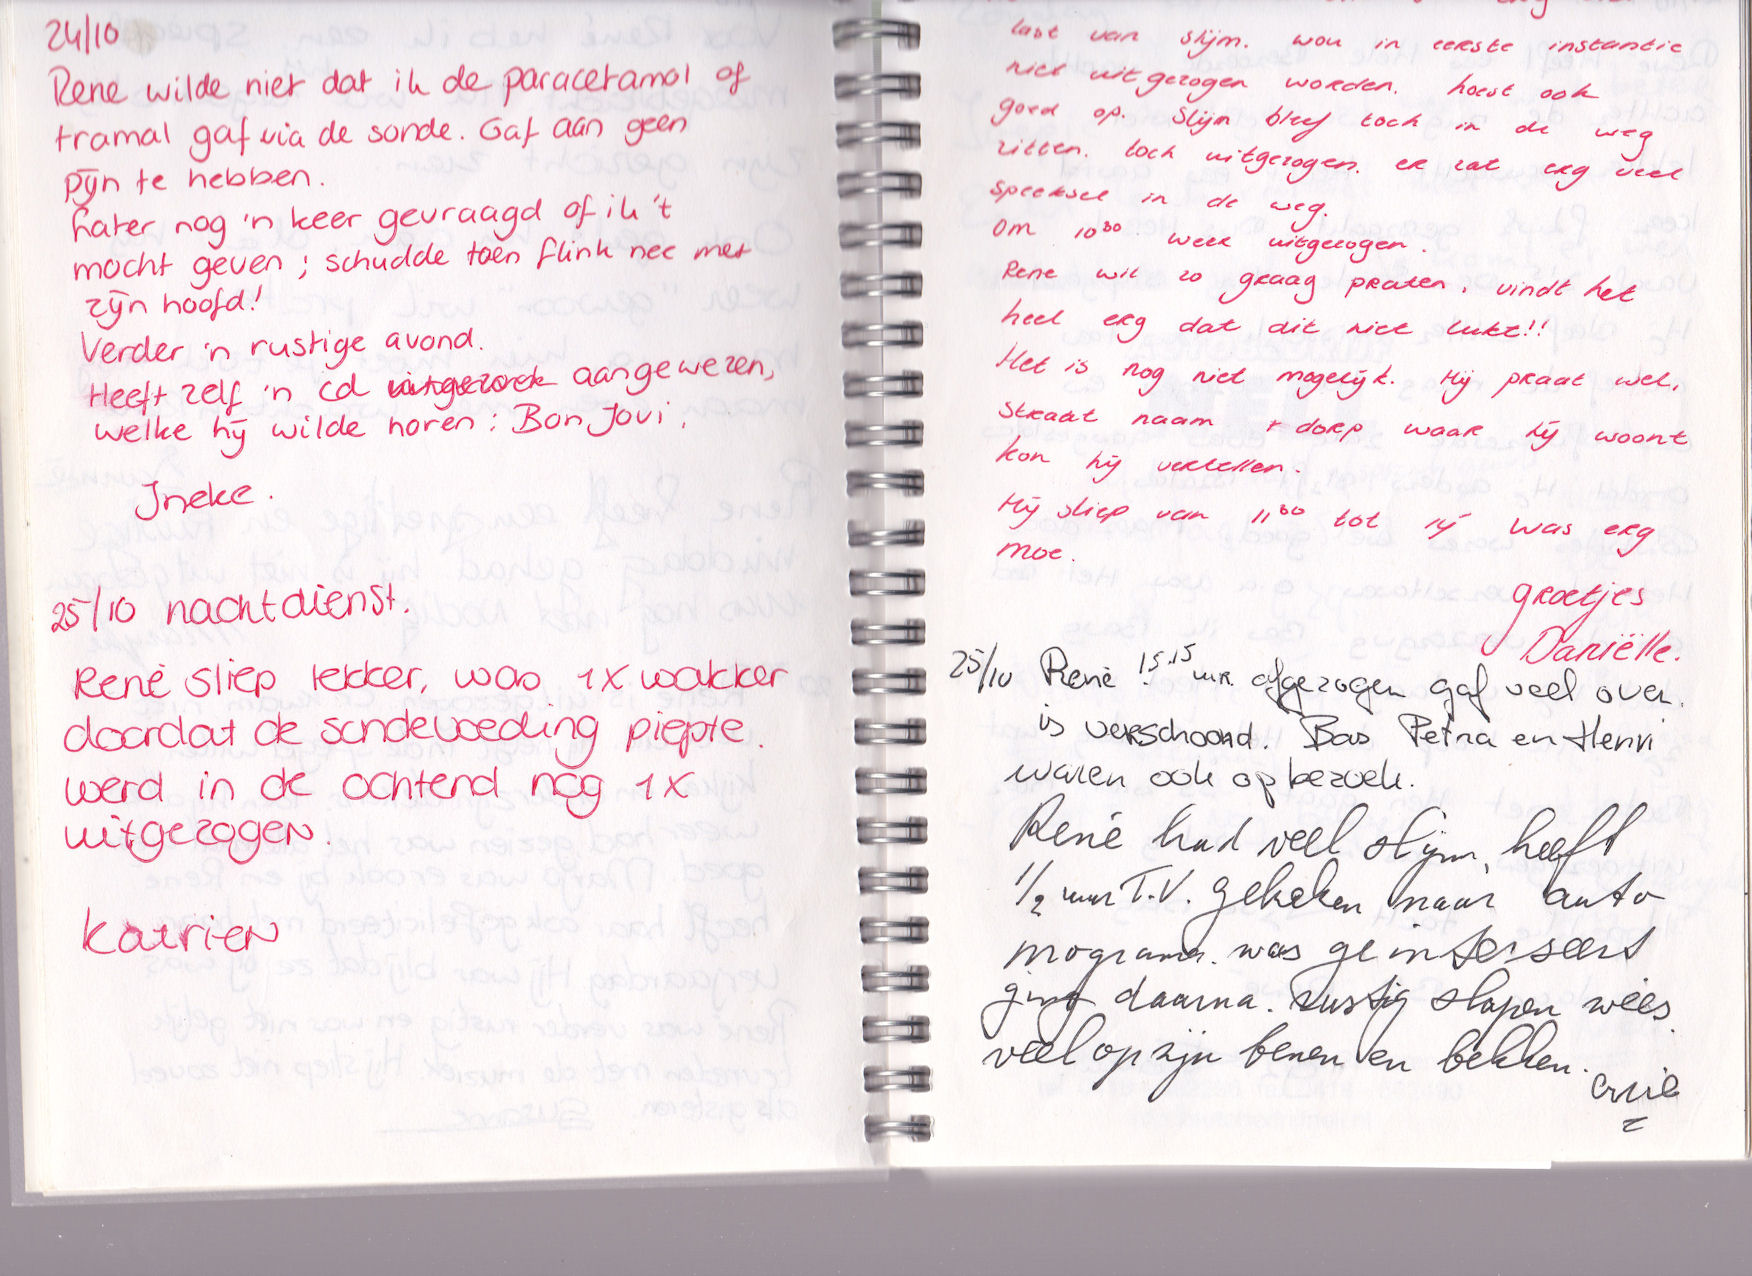 24/10
Rene wilde niet dat ik de paracetamol of
tramal gaf via de sonde. Gaf aan geen
pijn te hebben.
Later nog 'n keer gevraagd of ik 't
mocht geven ; schudde toen flink nee met
zijn hoofd!
Verder 'n rustige avond.
Heeft zelf 'n cd uitgezocht aangewezen,
welke hij wilde horen : Bon Jovi.
Ineke.
25/10 nachtdienst.
René sliep lekker, was 1x wakker
doordat de sondevoeding piepte.
werd in de ochtend nog 1x
uitgezogen.
Katrien
last van slijm. wou in eerste instantie
niet uitgezogen worden. hoest ook
goed op. Slijm bleef toch in de weg
zitten. toch uitgezogen. er zat erg veel
speeksel in de weg.
Om 10³⁰ weer uitgezogen.
Rene wil zo graag praten, vindt het
heel erg dat dit niet lukt!!
Het is nog niet mogelijk. Hij praat wel,
straat naam + dorp waar hij woont
kon hij vertellen.
Hij sliep van 11⁰⁰ tot 14 was erg
moe.
groetjes
Daniëlle.
25/10 René 15.15 uur afgezogen gaf veel over.
is verschoond. Bas Petra en Henri
waren ook op bezoek.
René had veel slijm, heeft
1/2 uur T.V. gekeken naar auto
programa. was geinterseert
ging daarna. rustig slapen wees
veel op zijn benen en bekken.